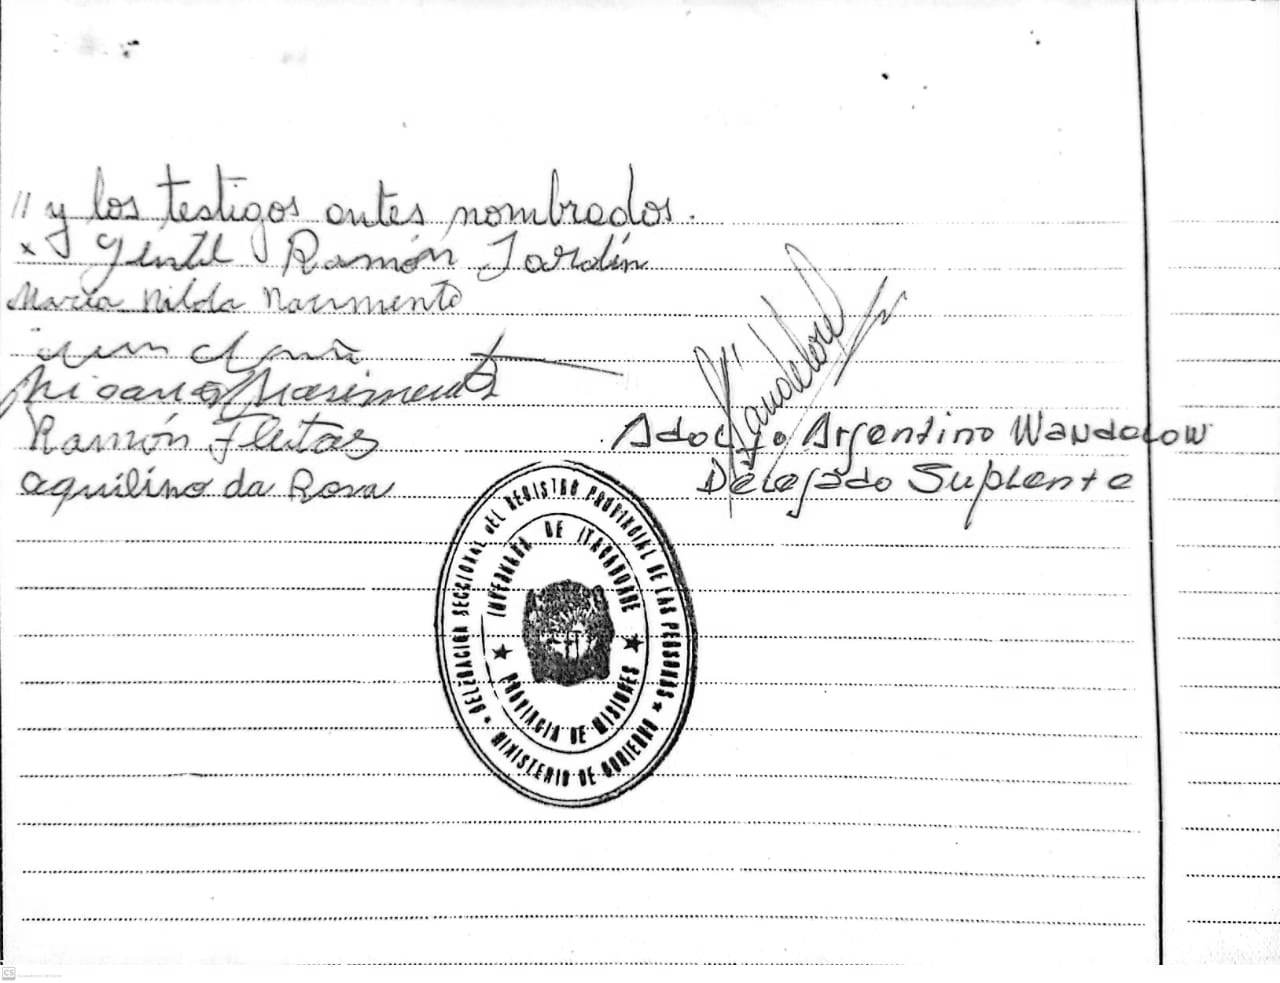 // y los testigos antes nombrados.
x Gentil Ramón Jardín
María Nilda Nacimento
Nacimento
Ramón Fleitas
aquilino da Rosa
Adolfo Argentino Wandelow
Delegado Suplente
DELEGACION SECCIONAL DEL REGISTRO PROVINCIAL DE LAS PERSONAS
INVERNADA DE ITACARUARE
PROVINCIA DE MISIONES
MINISTERIO DE GOBIERNO
CS